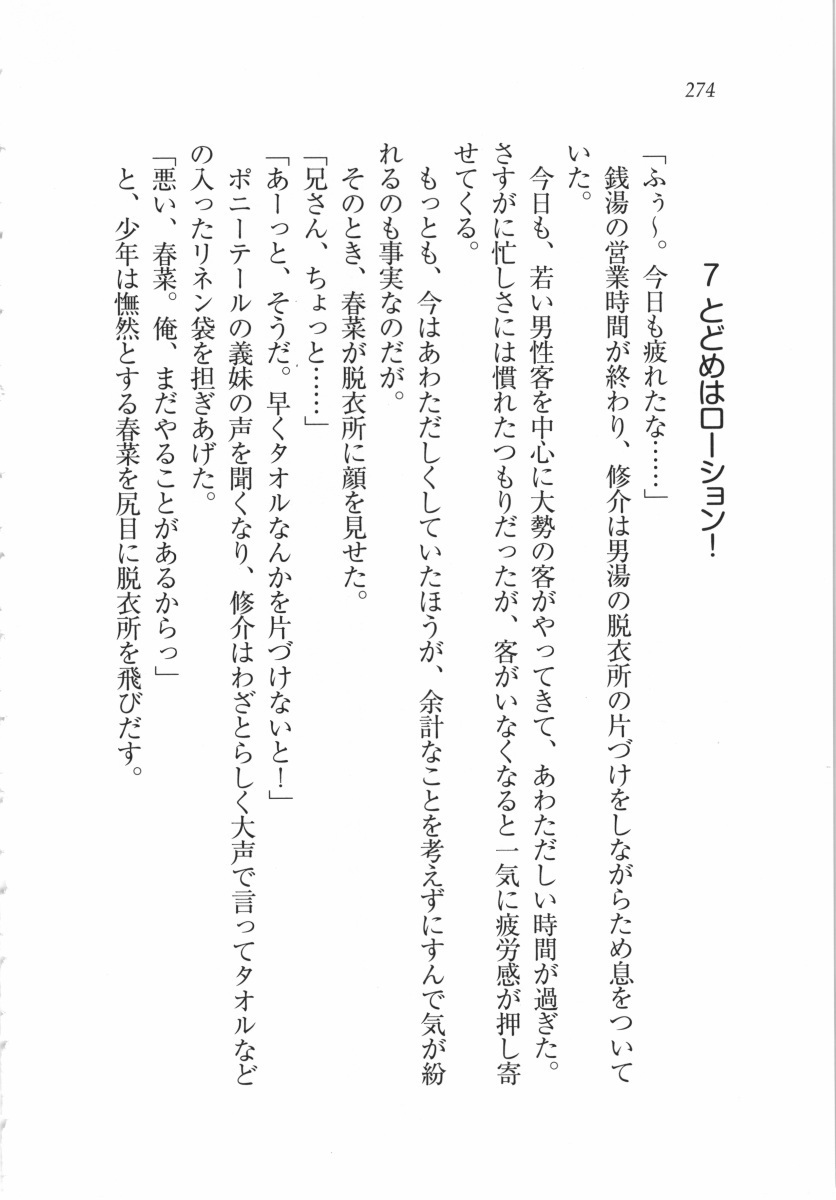 274
7 とどめはローション！
「ふぅ～。今日も疲れたな……」
　銭湯の営業時間が終わり、修介は男湯の脱衣所の片づけをしながらため息をついて
いた。
　今日も、若い男性客を中心に大勢の客がやってきて、あわただしい時間が過ぎた。
さすがに忙しさには慣れたつもりだったが、客がいなくなると一気に疲労感が押し寄
せてくる。
　もっとも、今はあわただしくしていたほうが、余計なことを考えずにすんで気が紛
れるのも事実なのだが。
　そのとき、春菜が脱衣所に顔を見せた。
「兄さん、ちょっと……」
「あーっと、そうだ。早くタオルなんかを片づけないと！」
　ポニーテールの義妹の声を聞くなり、修介はわざとらしく大声で言ってタオルなど
の入ったリネン袋を担ぎあげた。
「悪い、春菜。俺、まだやることがあるからっ」
　と、少年は憮然とする春菜を尻目に脱衣所を飛びだす。